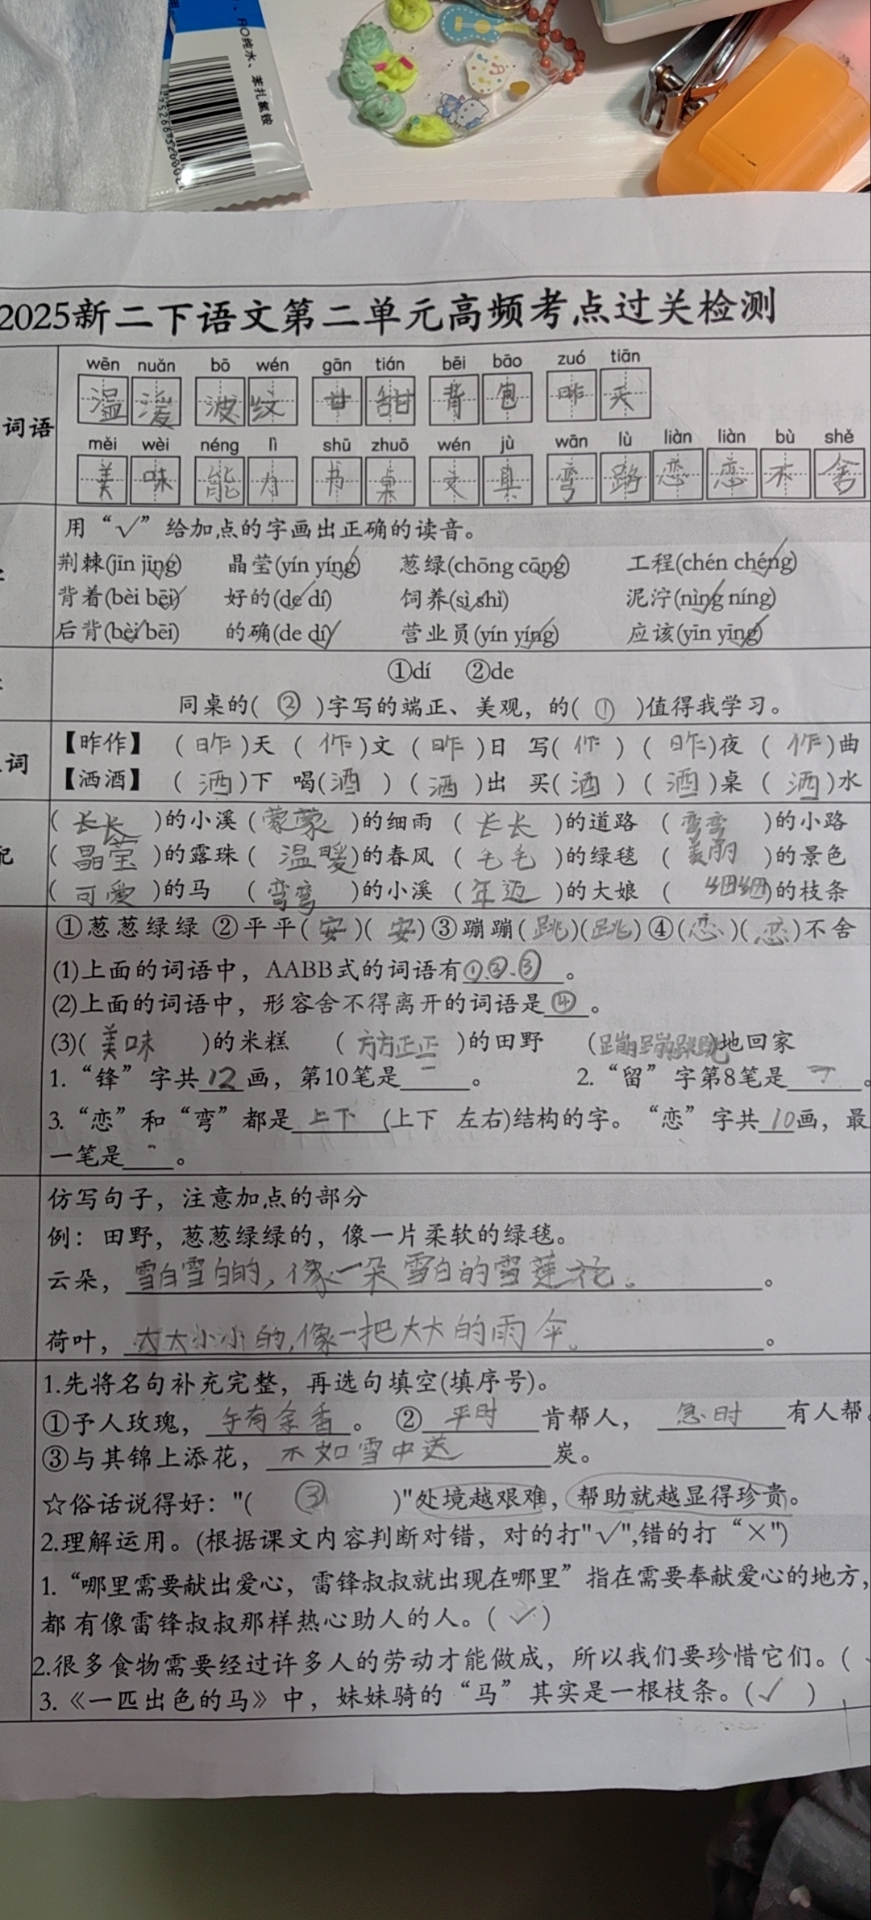 RO纯水、苯扎氯铵
2025新二下语文第二单元高频考点过关检测
wēn nuǎn bō wén gān tián bēi bāo zuó tiān
温 暖 波 纹 甘 甜 背 包 昨 天
词语
měi wèi néng lì shū zhuō wén jù wān lù liàn liàn bù shě
美 味 能 力 书 桌 文 具 弯 路 恋 恋 不 舍
用“√”给加点的字画出正确的读音。
荆棘(jīn jīng) 晶莹(yín yíng) 葱绿(chōng cōng) 工程(chén chéng)
背着(bèi bēi) 好的(de dí) 饲养(sì shì) 泥泞(nìng níng)
后背(bèi bēi) 的确(de dí) 营业员(yín yíng) 应该(yīn yīng)
①dí ②de
同桌的( ② )字写的端正、美观，的( ① )值得我学习。
词 【昨作】 ( 昨 )天 ( 作 )文 ( 昨 )日 写( 作 ) ( 昨 )夜 ( 作 )曲
【洒酒】 ( 洒 )下 喝( 酒 ) ( 洒 )出 买( 酒 ) ( 酒 )桌 ( 洒 )水
( 长长 )的小溪 ( 蒙蒙 )的细雨 ( 长长 )的道路 ( 弯弯 )的小路
配 ( 晶莹 )的露珠 ( 温暖 )的春风 ( 毛毛 )的绿毯 ( 美丽 )的景色
( 可爱 )的马 ( 弯弯 )的小溪 ( 年迈 )的大娘 ( 细细 )的枝条
①葱葱绿绿 ②平平( 安 )( 安 ) ③蹦蹦( 跳 )( 跳 ) ④( 恋 )( 恋 )不舍
(1)上面的词语中，AABB式的词语有①.②.③。
(2)上面的词语中，形容舍不得离开的词语是④。
(3)( 美味 )的米糕 ( 方方正正 )的田野 (蹦蹦跳跳)地回家
1.“锋”字共12画，第10笔是一。 2.“留”字第8笔是。
3.“恋”和“弯”都是上下(上下 左右)结构的字。“恋”字共10画，最
一笔是丶。
仿写句子，注意加点的部分
例：田野，葱葱绿绿的，像一片柔软的绿毯。
云朵，雪白雪白的，像一朵雪白的雪莲花。。
荷叶，大大小小的，像一把大大的雨伞。。
1.先将名句补充完整，再选句填空(填序号)。
①予人玫瑰，手有余香。 ②平时肯帮人，急时有人帮。
③与其锦上添花，不如雪中送炭。
☆俗话说得好："( ③ )"处境越艰难，帮助就越显得珍贵。
2.理解运用。(根据课文内容判断对错，对的打"√",错的打“×")
1.“哪里需要献出爱心，雷锋叔叔就出现在哪里”指在需要奉献爱心的地方，
都有像雷锋叔叔那样热心助人的人。( √ )
2.很多食物需要经过许多人的劳动才能做成，所以我们要珍惜它们。(
3.《一匹出色的马》中，妹妹骑的“马”其实是一根枝条。( √ )